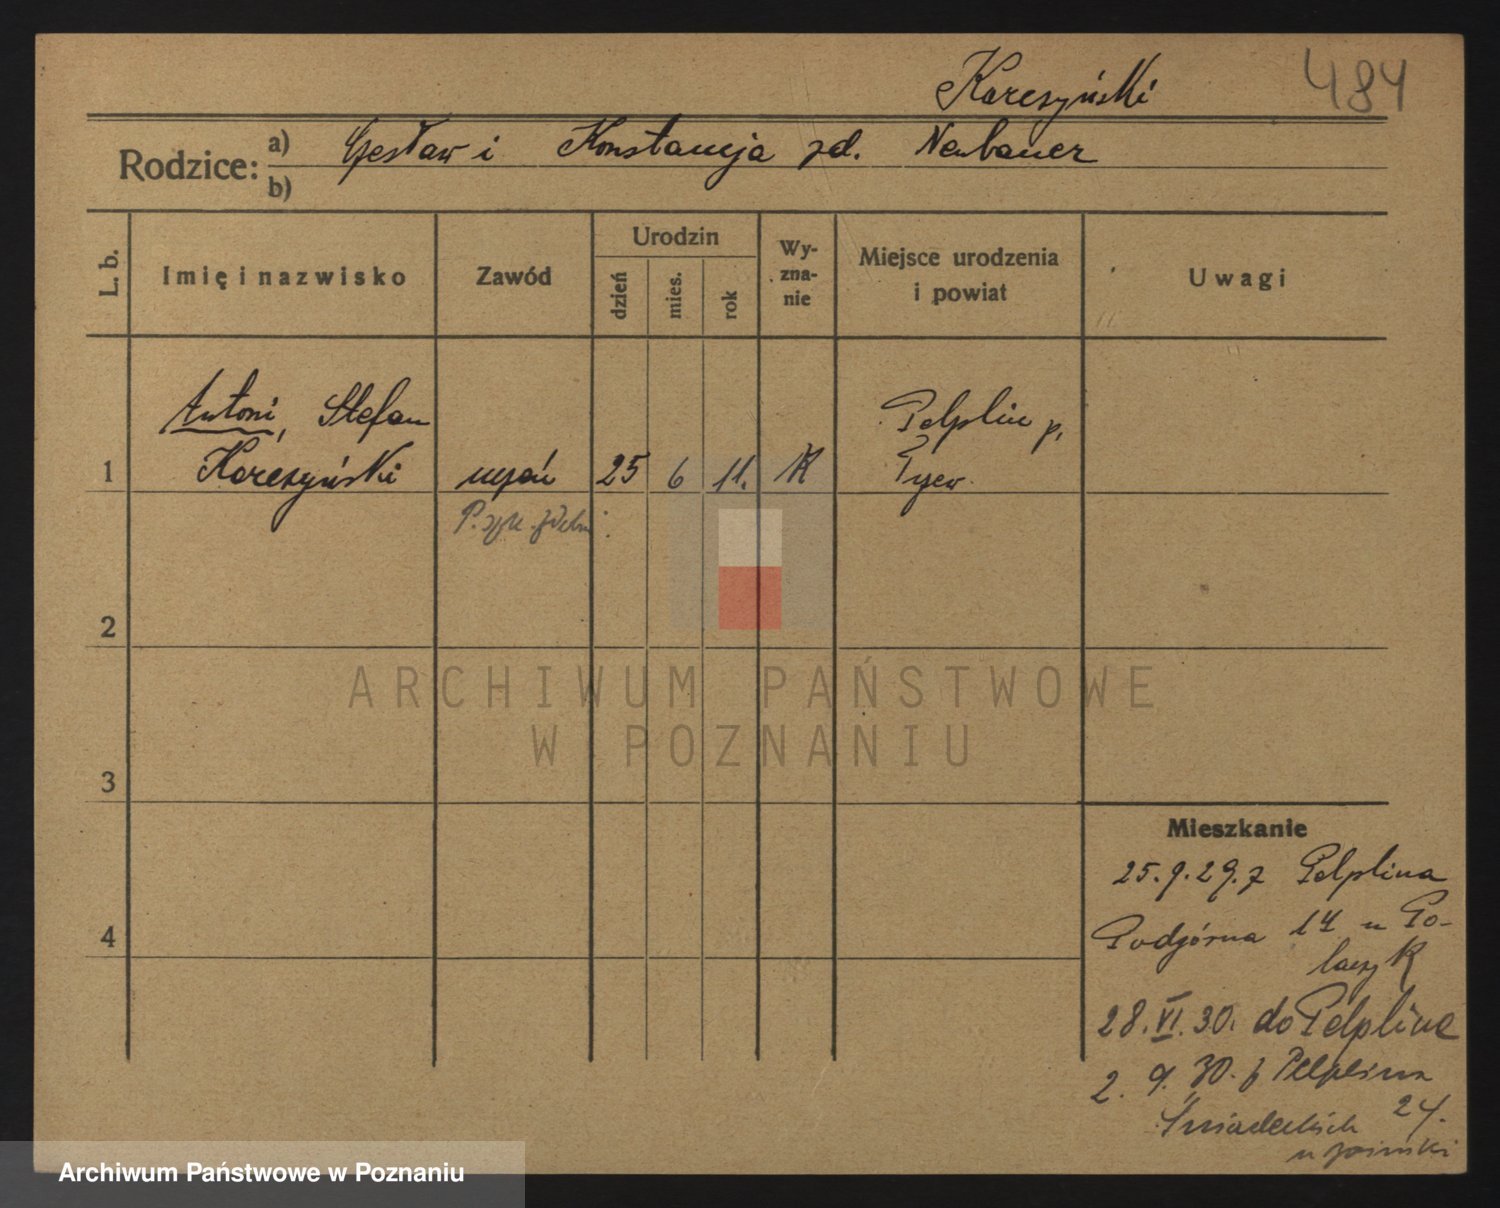 Korczyński 484
Rodzice: a) Czesław i Konstancja zd. Neubauer
b)
L. b. Imię i nazwisko Zawód Urodzin dzień mies. rok Wy-zna-nie Miejsce urodzenia i powiat Uwagi
Antoni, Stefan Pelplin p.
1 Korczyński uczeń 25 6 11. K Tczew
2
3
4
Mieszkanie
25.9.29. z Pelplina
Podgórna 14 u Po-
laczyk
28.VI.30. do Pelplina
2. 9. 30. z Pelplina
Śniadeckich 24.
ARCHIWUM PAŃSTWOWE
W POZNANIU
Archiwum Państwowe w Poznaniu